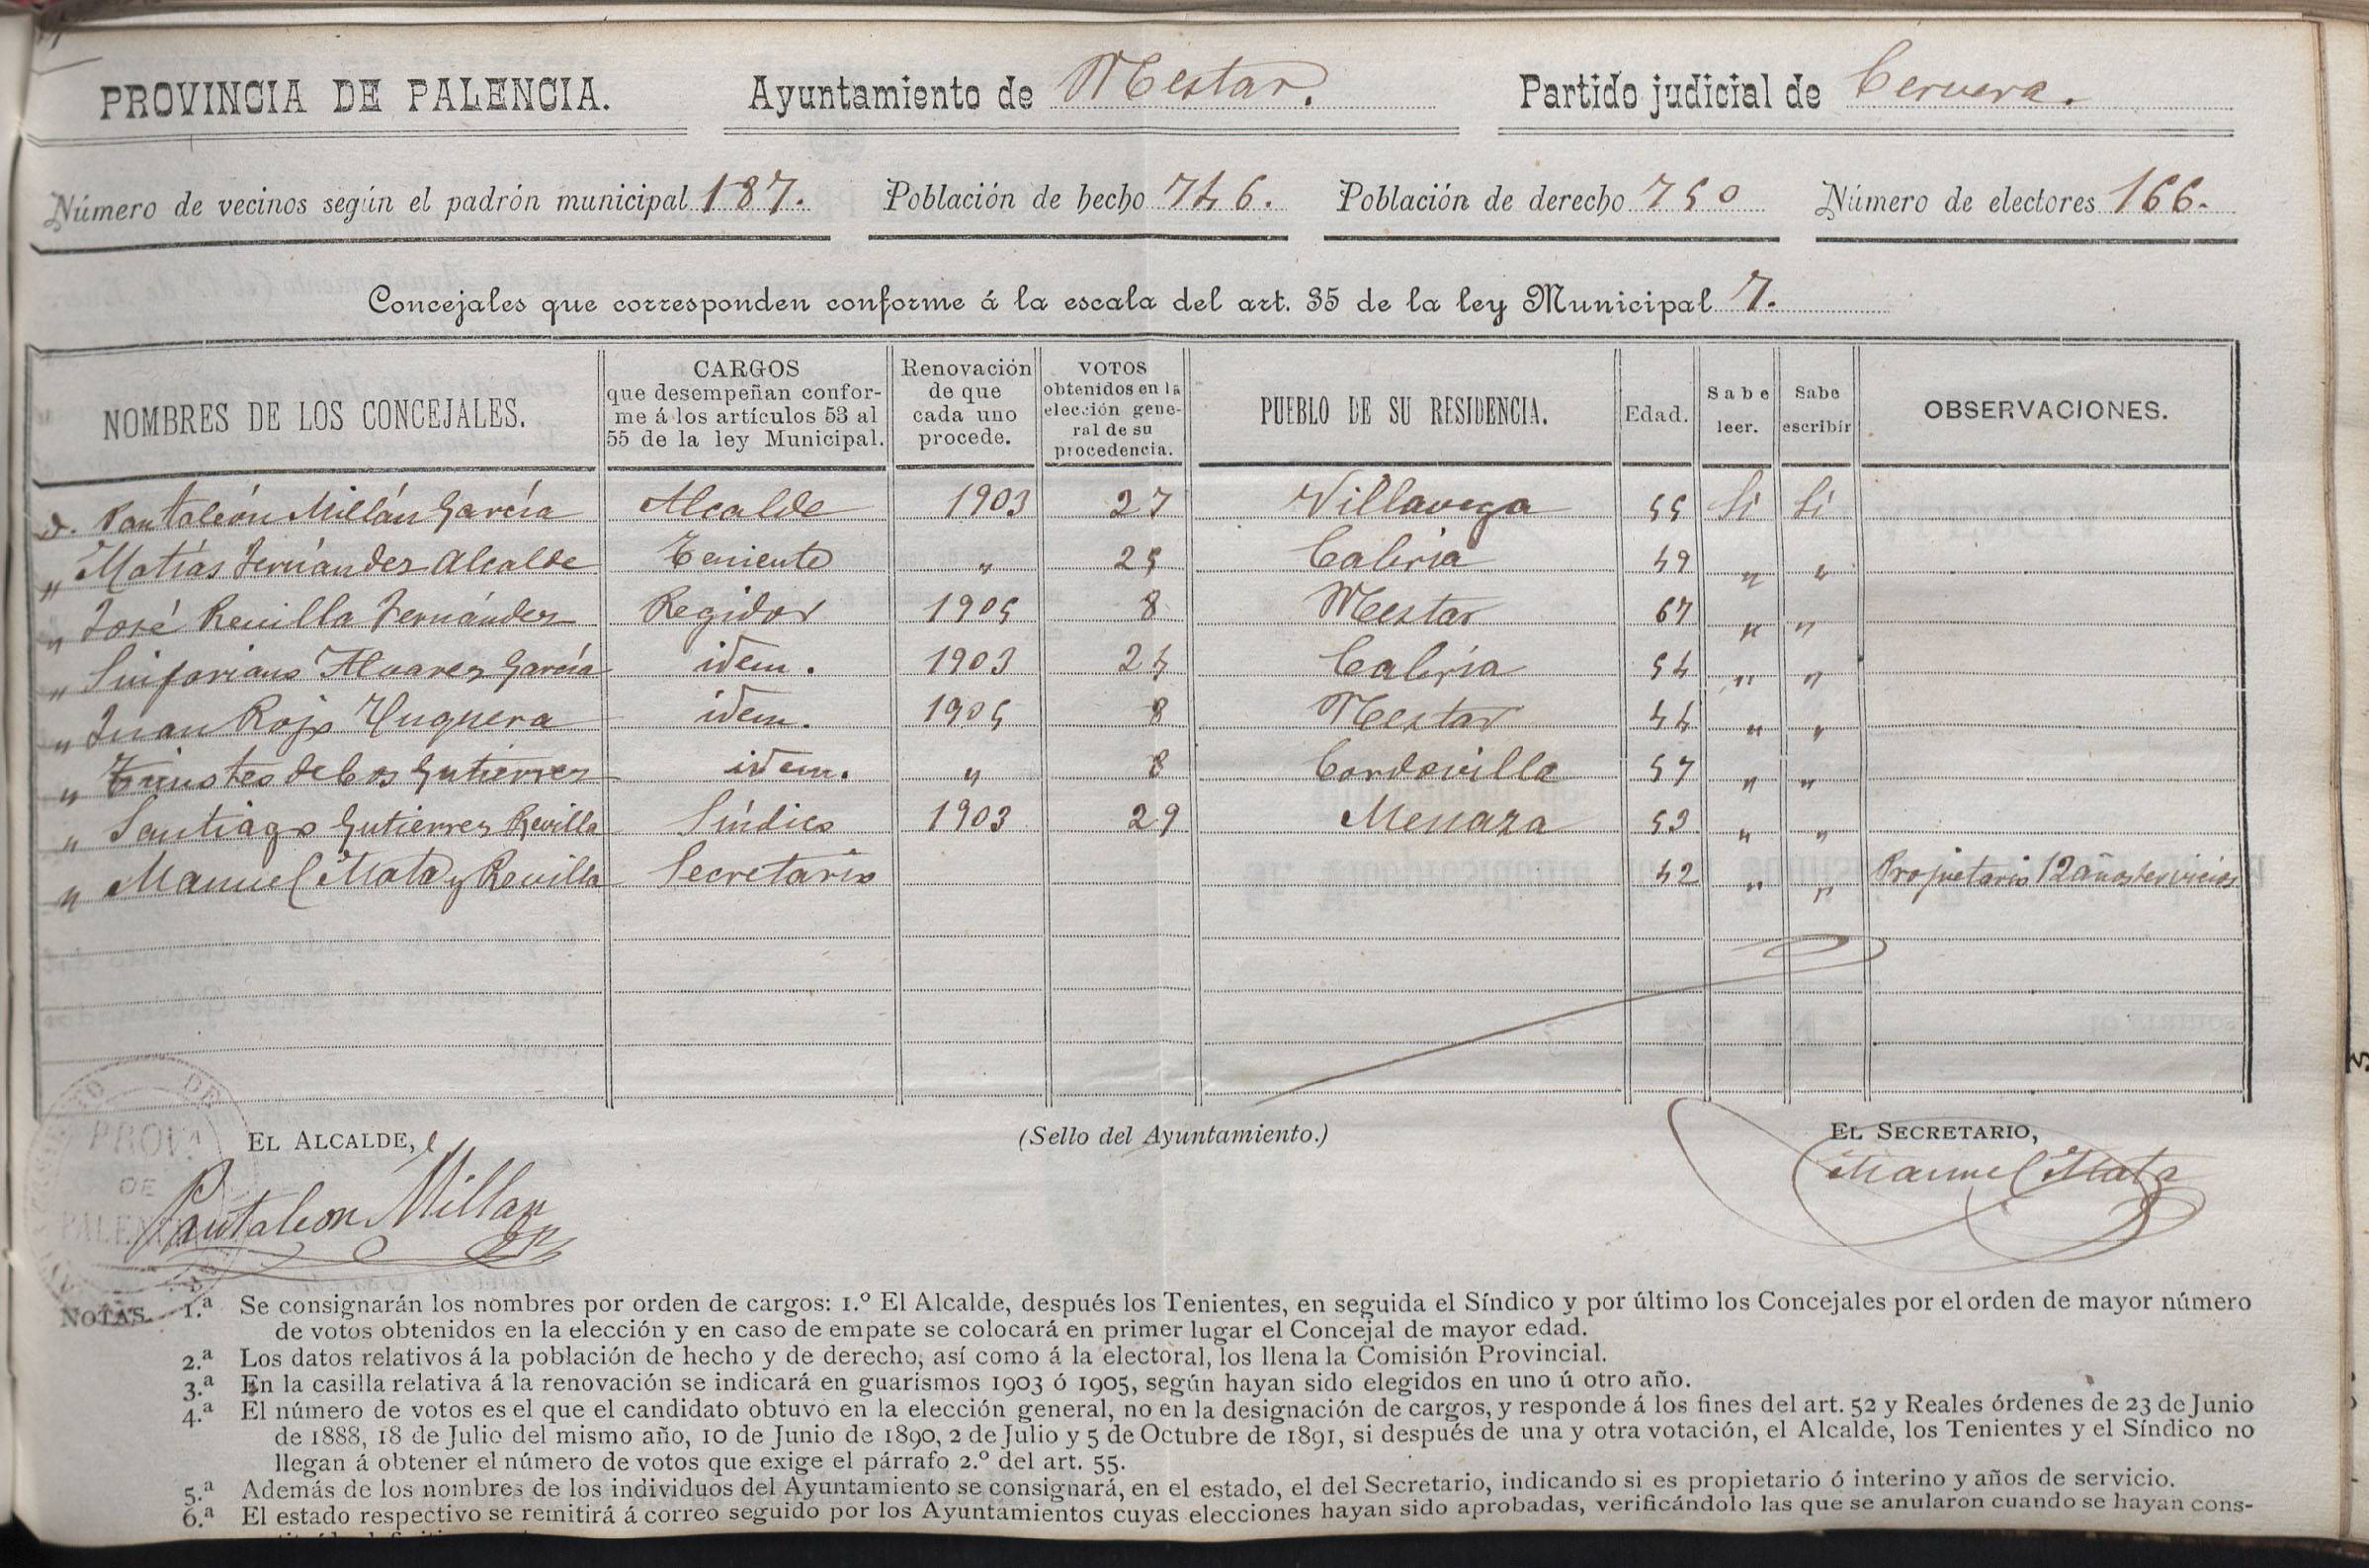 PROVINCIA DE PALENCIA. Ayuntamiento de Nestar. Partido judicial de Cervera.
Número de vecinos según el padrón municipal 187. Población de hecho 746. Población de derecho 750 Número de electores 166.
Concejales que corresponden conforme á la escala del art. 35 de la ley Municipal 7.
NOMBRES DE LOS CONCEJALES. CARGOS que desempeñan confor- me á los artículos 53 al 55 de la ley Municipal. Renovación de que cada uno procede. VOTOS obtenidos en la elección gene- ral de su procedencia. PUEBLO DE SU RESIDENCIA. Edad. Sabe leer. Sabe escribir OBSERVACIONES.
D. Pantaleón Millán García Alcalde 1903 27 Villavega 55 Si Si
" Matías Fernández Alcalde Teniente " 25 Cabria 49 " "
" José Revilla Fernández Regidor 1905 8 Nestar 67 " "
" Sinforiano Alvarez García idem. 1903 24 Cabria 54 " "
" Juan Rojo Yuguera idem. 1905 8 Nestar 44 " "
" Gutiérrez idem. " 8 Cordovilla 57 " "
" Santiago Gutiérrez Revilla Síndico 1903 29 Menaza 53 " "
" Manuel Mata y Revilla Secretario 42 " " Propietario 12 años servicios
PROVA
DE
PALENCIA
EL ALCALDE, (Sello del Ayuntamiento.) EL SECRETARIO,
Pantaleon Millan Manuel Mata
NOTAS. 1.ª Se consignarán los nombres por orden de cargos: 1.º El Alcalde, después los Tenientes, en seguida el Síndico y por último los Concejales por el orden de mayor número
de votos obtenidos en la elección y en caso de empate se colocará en primer lugar el Concejal de mayor edad.
2.ª Los datos relativos á la población de hecho y de derecho, así como á la electoral, los llena la Comisión Provincial.
3.ª En la casilla relativa á la renovación se indicará en guarismos 1903 ó 1905, según hayan sido elegidos en uno ú otro año.
4.ª El número de votos es el que el candidato obtuvo en la elección general, no en la designación de cargos, y responde á los fines del art. 52 y Reales órdenes de 23 de Junio
de 1888, 18 de Julio del mismo año, 10 de Junio de 1890, 2 de Julio y 5 de Octubre de 1891, si después de una y otra votación, el Alcalde, los Tenientes y el Síndico no
llegan á obtener el número de votos que exige el párrafo 2.º del art. 55.
5.ª Además de los nombres de los individuos del Ayuntamiento se consignará, en el estado, el del Secretario, indicando si es propietario ó interino y años de servicio.
6.ª El estado respectivo se remitirá á correo seguido por los Ayuntamientos cuyas elecciones hayan sido aprobadas, verificándolo las que se anularon cuando se hayan cons-